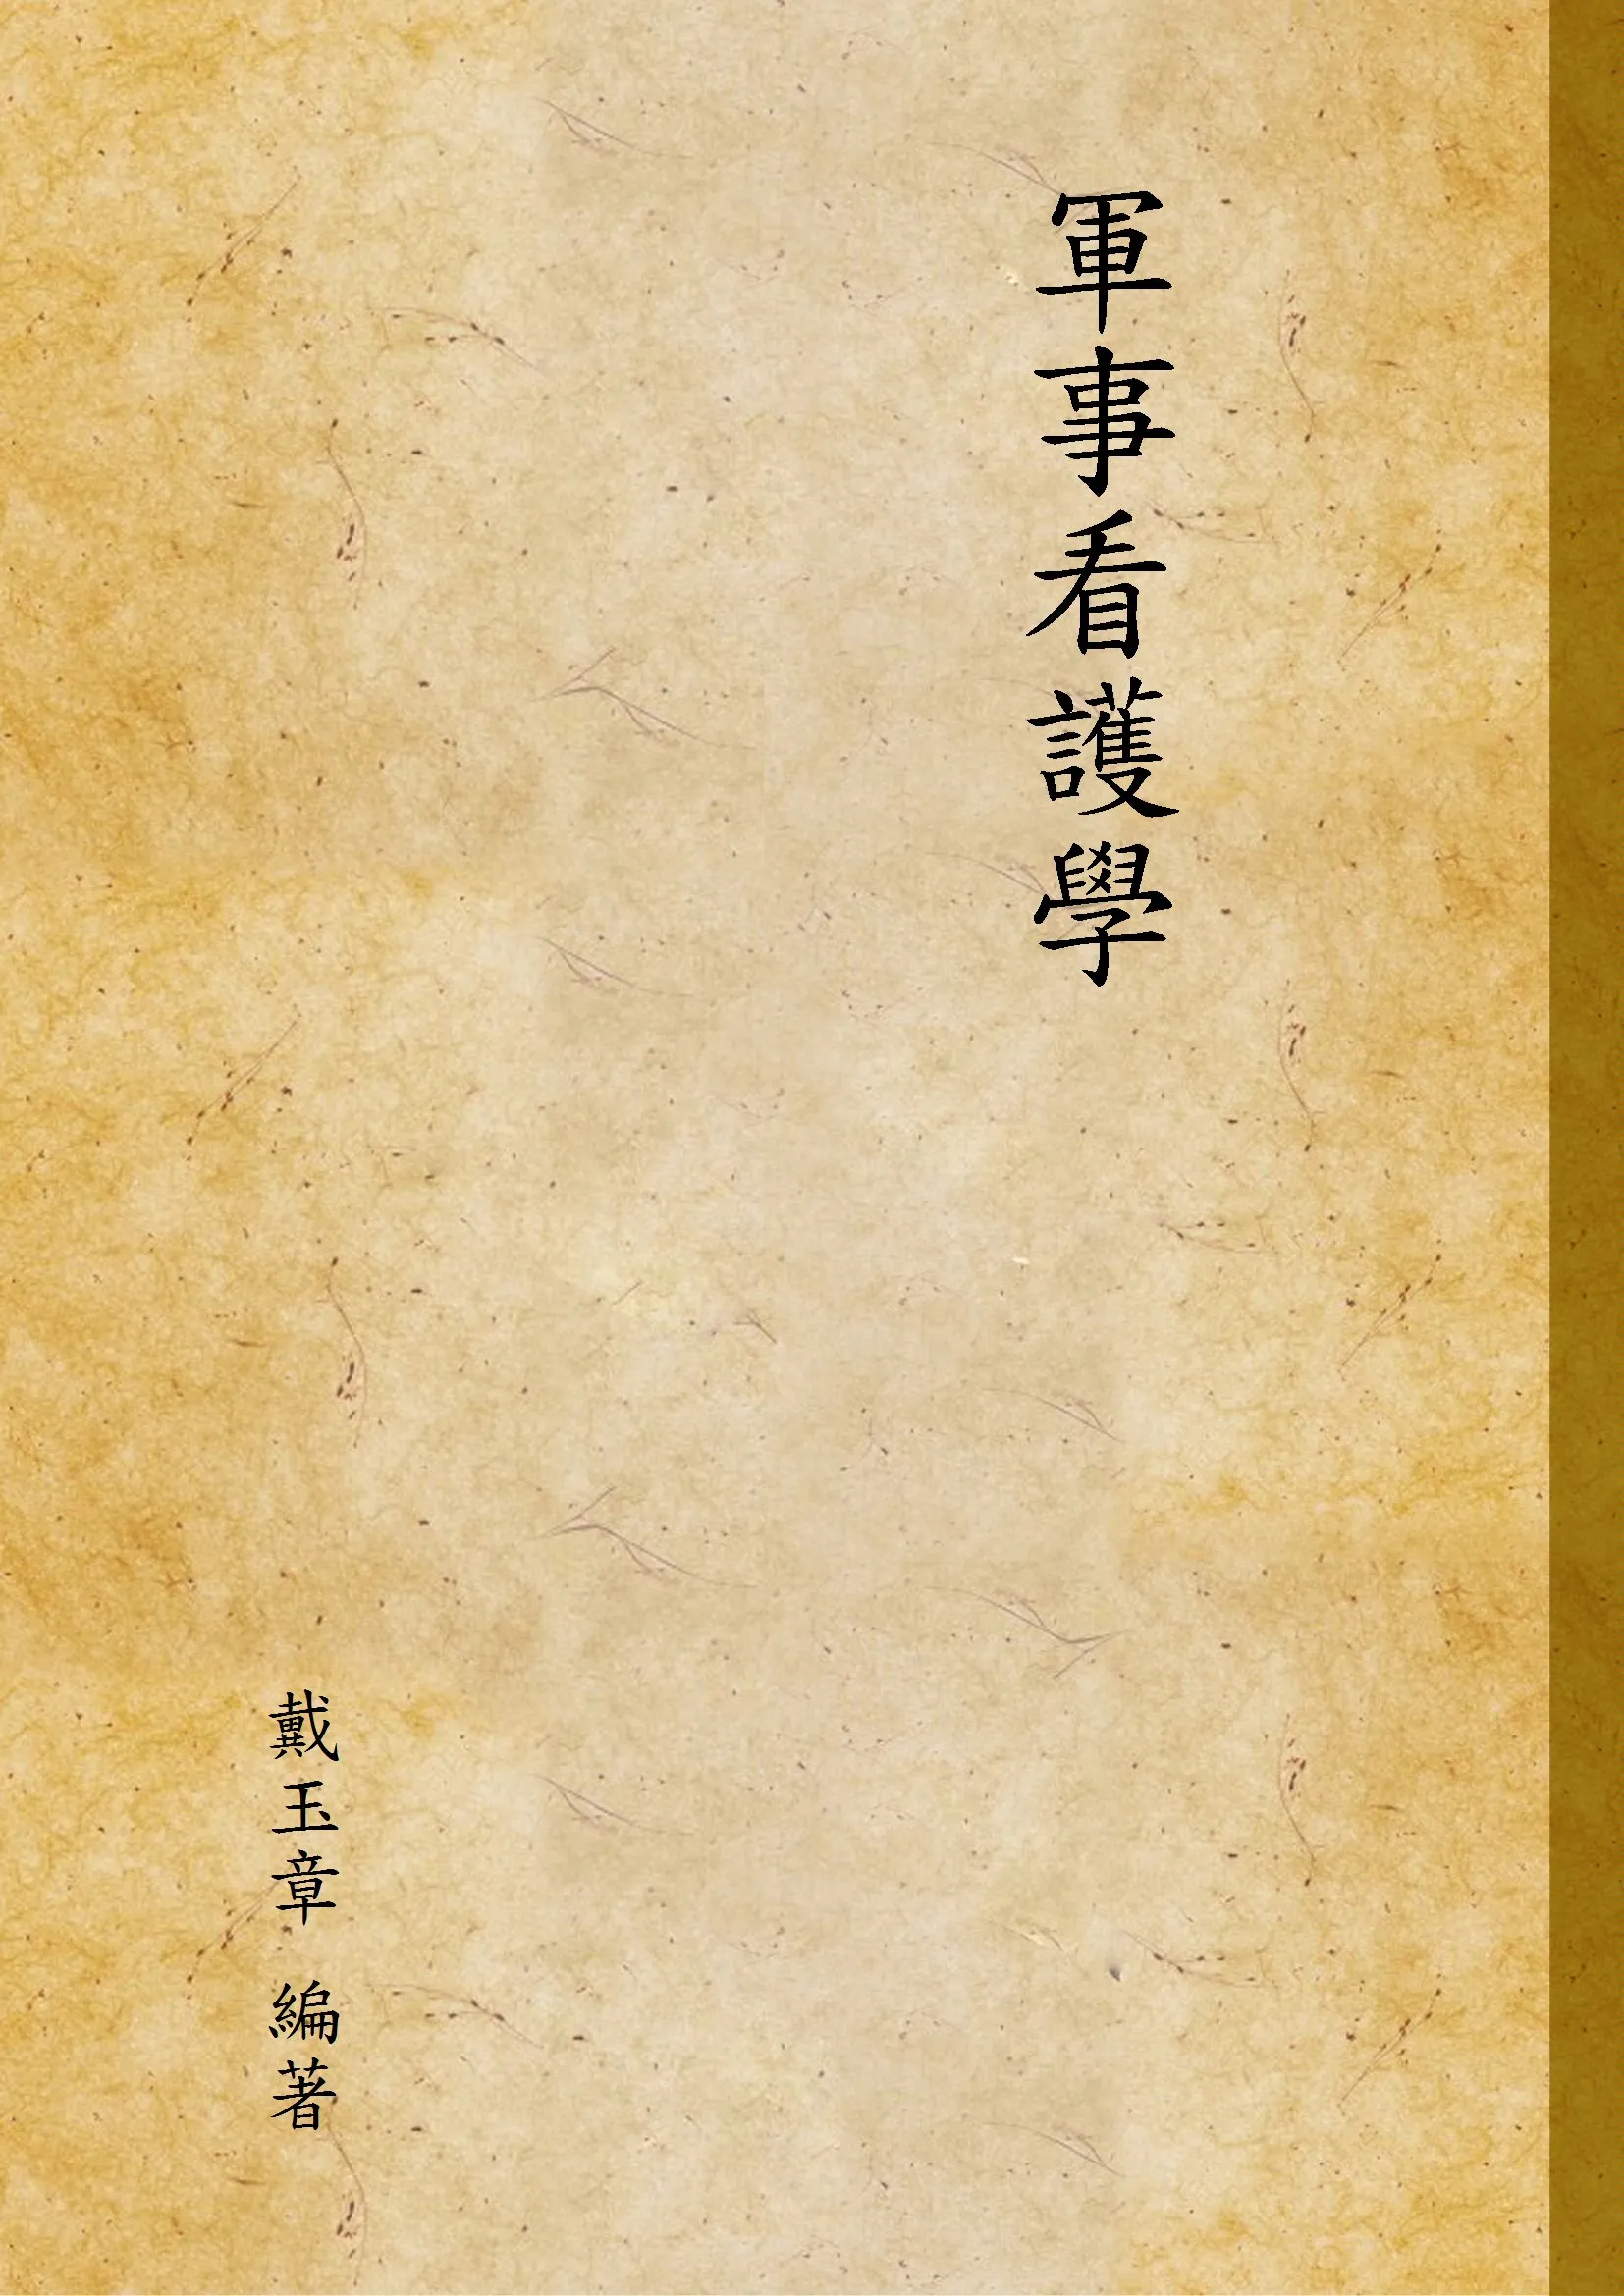 軍事看護學
戴玉章 編著